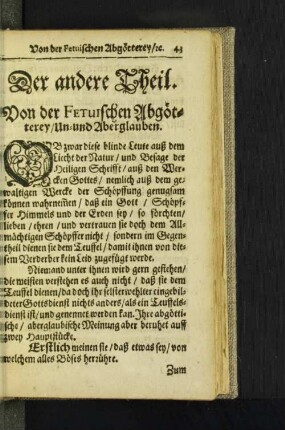 Von der Fetuischen Abgötterey/ꝛc. 43
Der andere Theil.
Von der FETUIschen Abgöt-
terey/Un- und Aberglauben.
OB zwar diese blinde Leute auß dem
Liecht der Natur / und Besage der
Heiligen Schrifft / auß den Wer-
cken Gottes / nemlich auß dem ge-
waltigen Wercke der Schöpffung genugsam
können wahrnem̃en / daß ein Gott / Schöpf-
fer Himmels und der Erden sey / so förchten/
lieben / ehren / und vertrauen sie doch dem All-
mächtigen Schöpffer nicht / sondern im Gegen-
theil dienen sie dem Teuffel / damit ihnen von die-
sem Verderber kein Leid zugefügt werde.
Niemand unter ihnen wird gern gestehen/
die meisten verstehen es auch nicht / daß sie dem
Teuffel dienen / da doch ihr selbsterwöhlter eingebil-
deter Gottsdienst nichts anders / als ein Teuffels-
dienst ist / und genennet werden kan. Ihre abgötti-
sche / aberglaubische Meinung aber beruhet auff
zwey Hauptstücke.
Erstlich meinen sie / daß etwas sey / von
welchem alles Böses herrühre.
Zum